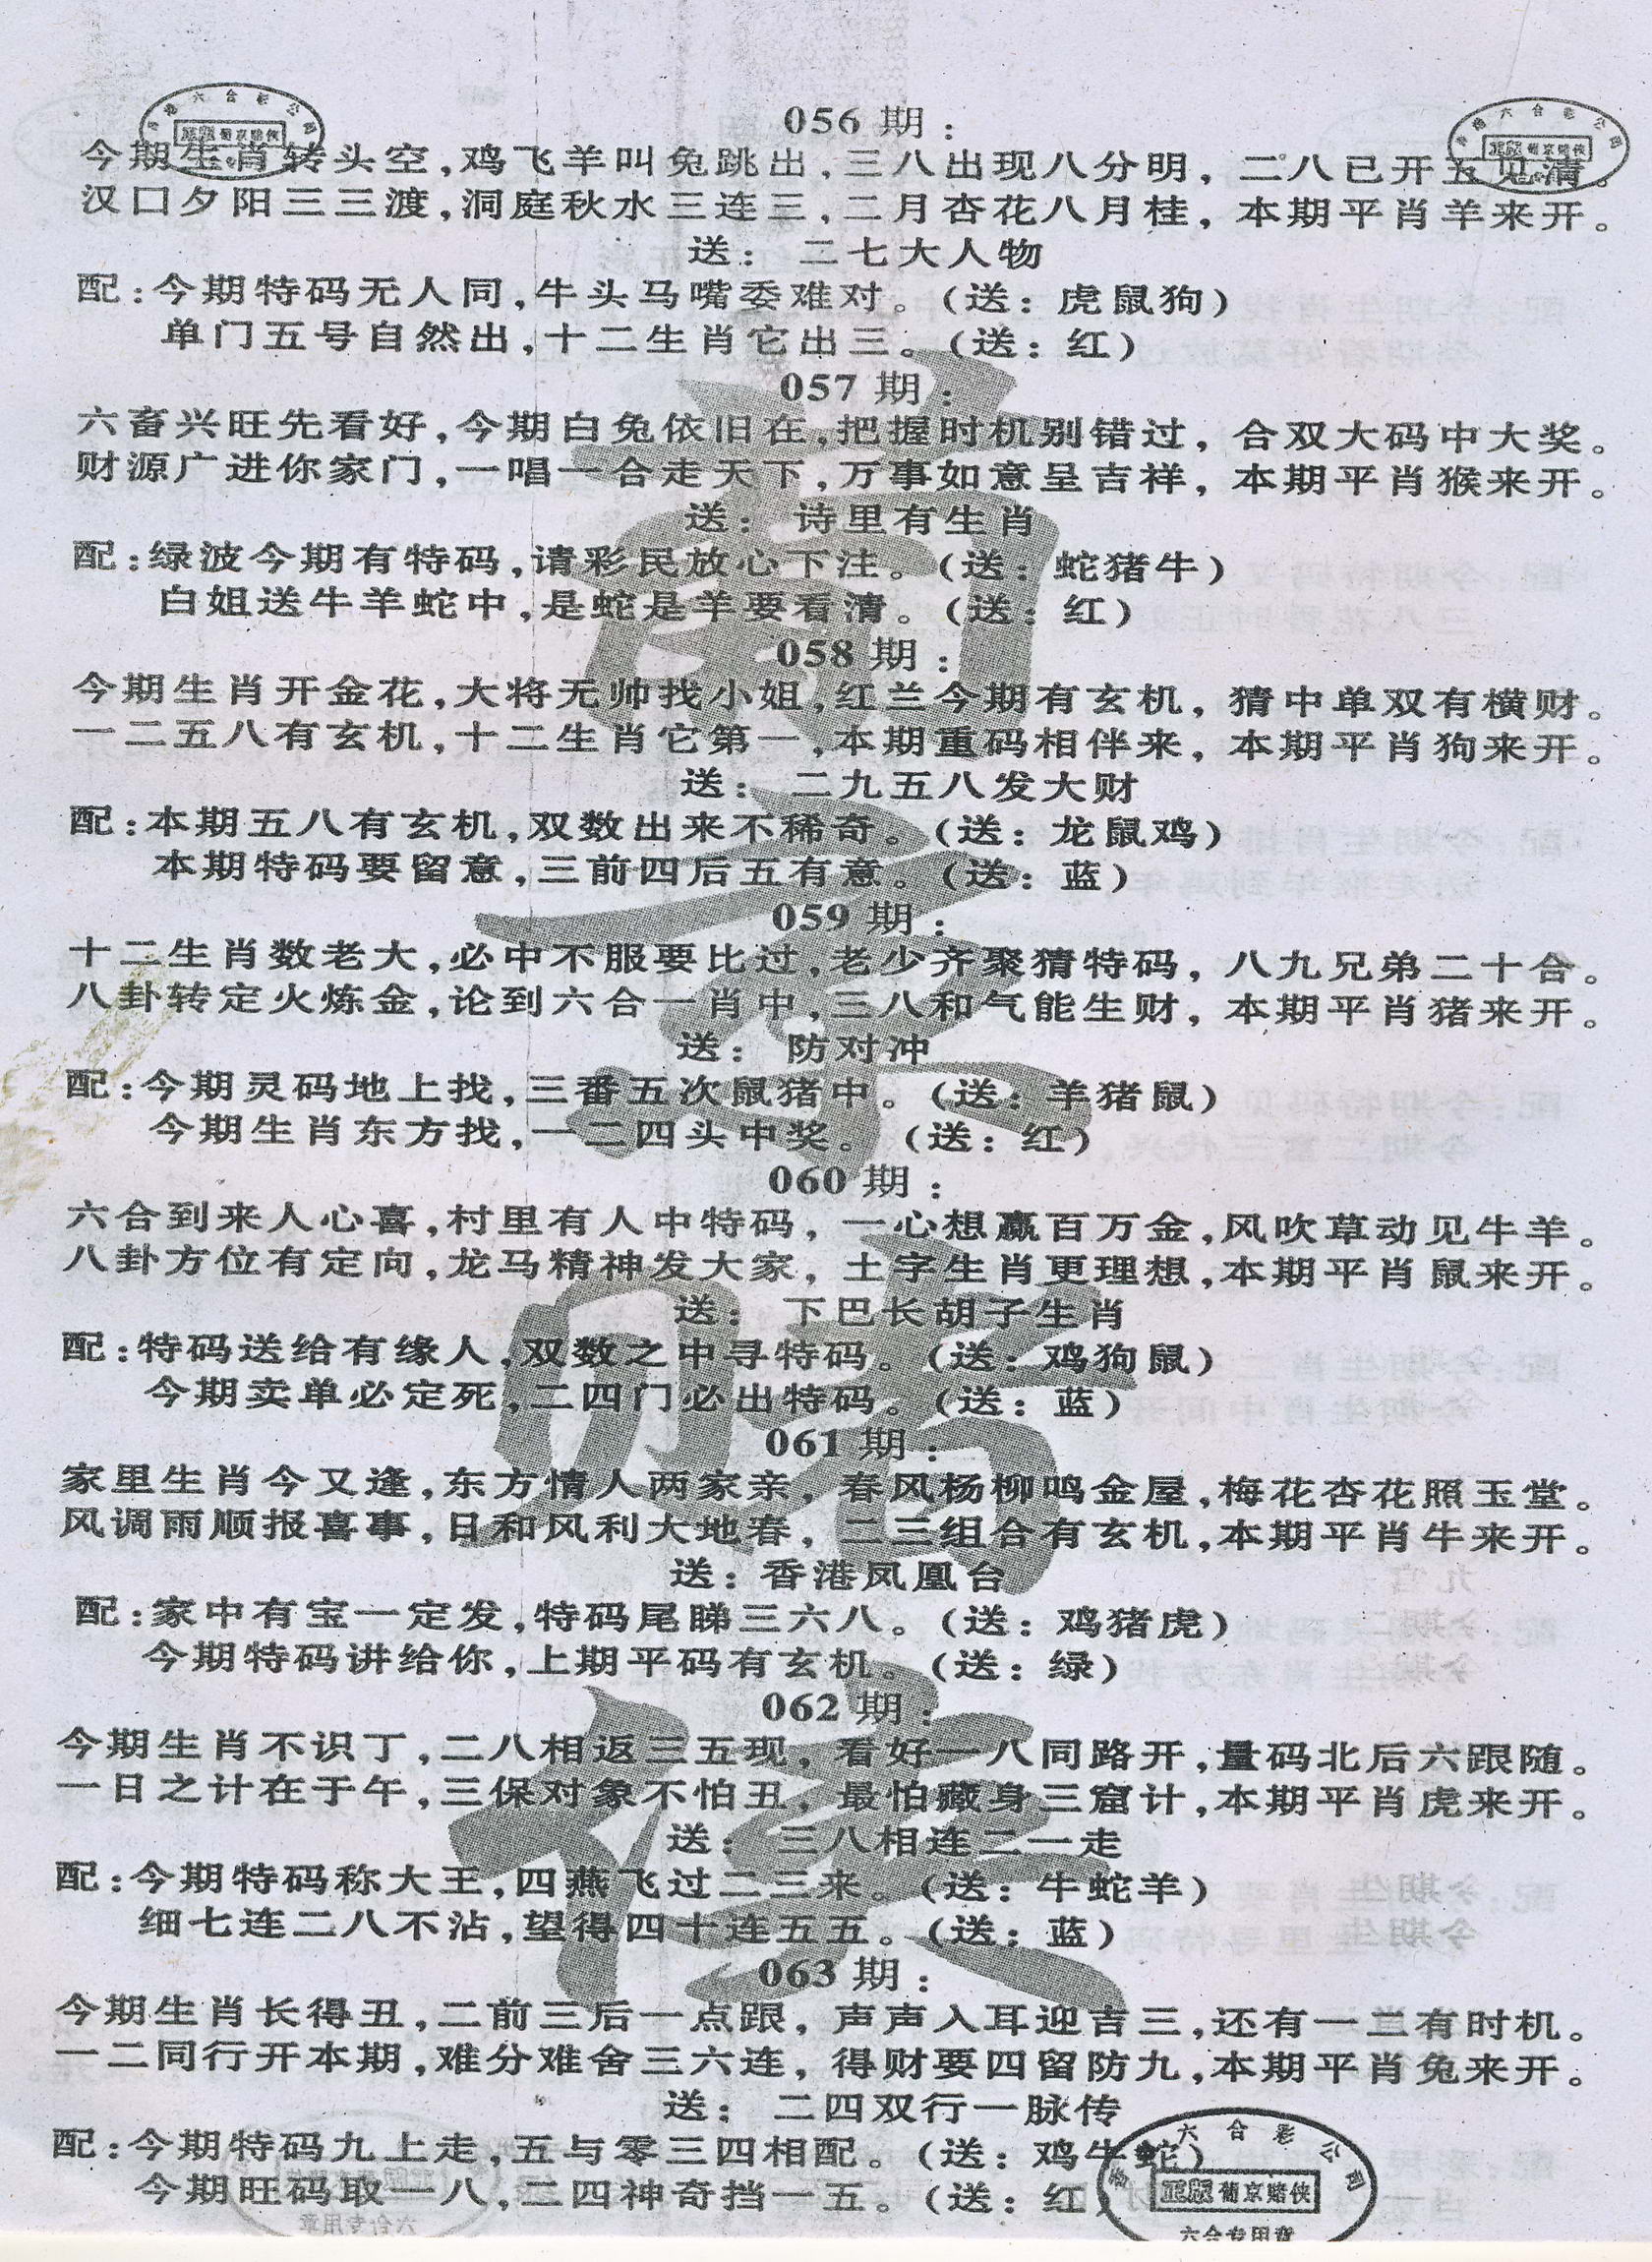 056期：
今期生肖转头空,鸡飞羊叫兔跳出,三八出现八分明,二八已开五见清。
汉口夕阳三三渡,洞庭秋水三连三,二月杏花八月桂,本期平肖羊来开。
送：二七大人物
配:今期特码无人同,牛头马嘴委难对。(送：虎鼠狗)
单门五号自然出,十二生肖它出三。(送：红)
057期：
六畜兴旺先看好,今期白兔依旧在,把握时机别错过,合双大码中大奖。
财源广进你家门,一唱一合走天下,万事如意呈吉祥,本期平肖猴来开。
送：诗里有生肖
配:绿波今期有特码,请彩民放心下注。(送：蛇猪牛)
白姐送牛羊蛇中,是蛇是羊要看清。(送：红)
058期：
今期生肖开金花,大将无帅找小姐,红兰今期有玄机,猜中单双有横财。
一二五八有玄机,十二生肖它第一,本期重码相伴来,本期平肖狗来开。
送：二九五八发大财
配:本期五八有玄机,双数出来不稀奇。(送：龙鼠鸡)
本期特码要留意,三前四后五有意。(送：蓝)
059期：
十二生肖数老大,必中不服要比过,老少齐聚猜特码,八九兄弟二十合。
八卦转定火炼金,论到六合一肖中,三八和气能生财,本期平肖猪来开。
送：防对冲
配:今期灵码地上找,三番五次鼠猪中。(送：羊猪鼠)
今期生肖东方找,一二四头中奖。(送：红)
060期：
六合到来人心喜,村里有人中特码,一心想赢百万金,风吹草动见牛羊。
八卦方位有定向,龙马精神发大家,土字生肖更理想,本期平肖鼠来开。
送：下巴长胡子生肖
配:特码送给有缘人,双数之中寻特码。(送：鸡狗鼠)
今期卖单必定死,二四门必出特码。(送：蓝)
061期：
家里生肖今又逢,东方情人两家亲,春风杨柳鸣金屋,梅花杏花照玉堂。
风调雨顺报喜事,日和风利大地春,二三组合有玄机,本期平肖牛来开。
送：香港凤凰台
配:家中有宝一定发,特码尾睇三六八。(送：鸡猪虎)
今期特码讲给你,上期平码有玄机。(送：绿)
062期：
今期生肖不识丁,二八相返三五现,看好一八同路开,量码北后六跟随。
一日之计在于午,三保对象不怕丑,最怕藏身三窟计,本期平肖虎来开。
送：三八相连二一走
配:今期特码称大王,四燕飞过二三来。(送：牛蛇羊)
细七连二八不沾,望得四十连五五。(送：蓝)
063期：
今期生肖长得丑,二前三后一点跟,声声入耳迎吉三,还有一二有时机。
一二同行开本期,难分难舍三六连,得财要四留防九,本期平肖兔来开。
送：二四双行一脉传
配:今期特码九上走,五与零三四相配。(送：鸡牛蛇)
今期旺码取一八,二四神奇挡一五。(送：红)
六合彩公司
正版葡京赌侠
六合专用章